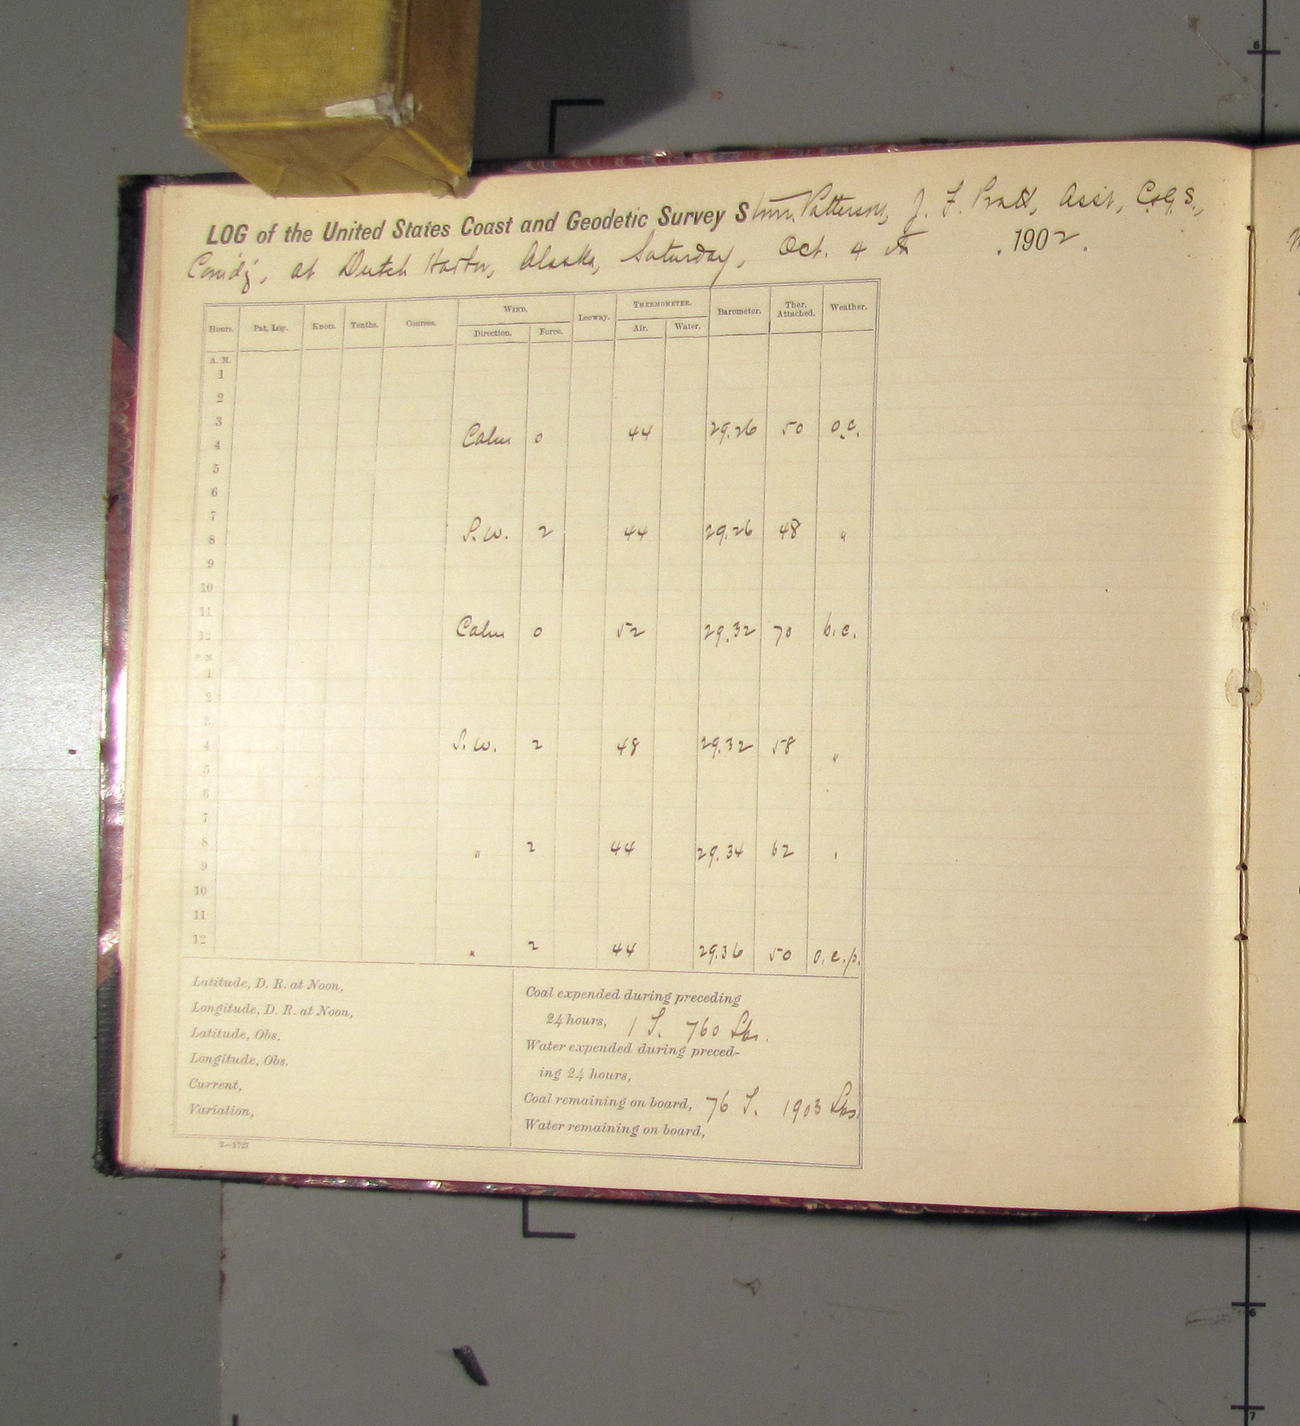 LOG of the United States Coast and Geodetic Survey Stmr. Patterson, J. F. Pratt, Asst, C.&G.S.,
Comd'g, at Dutch Harbor, Alaska, Saturday, Oct. 4th, 1902.
Hours. Pat. Log. Knots. Tenths. Courses. WIND. Leeway. THERMOMETER. Barometer. Ther. Attached. Weather.
Direction. Force. Air. Water.
A. M.
1
2
3
4 Calm 0 44 29.26 50 o.c.
5
6
7
8 S.W. 2 44 29.26 48 "
9
10
11
12 Calm 0 52 29.32 70 b.c.
P. M.
1
2
3
4 S.W. 2 48 29.32 58 "
5
6
7
8 " 2 44 29.34 62 "
9
10
11
12 " 2 44 29.36 50 o.c.p.
Latitude, D. R. at Noon,
Longitude, D. R. at Noon,
Latitude, Obs.
Longitude, Obs.
Current,
Variation,
Coal expended during preceding
24 hours, 1 T. 760 Lbs.
Water expended during preced-
ing 24 hours,
Coal remaining on board, 76 T. 1903 Lbs.
Water remaining on board,
2—5727
6
6
7